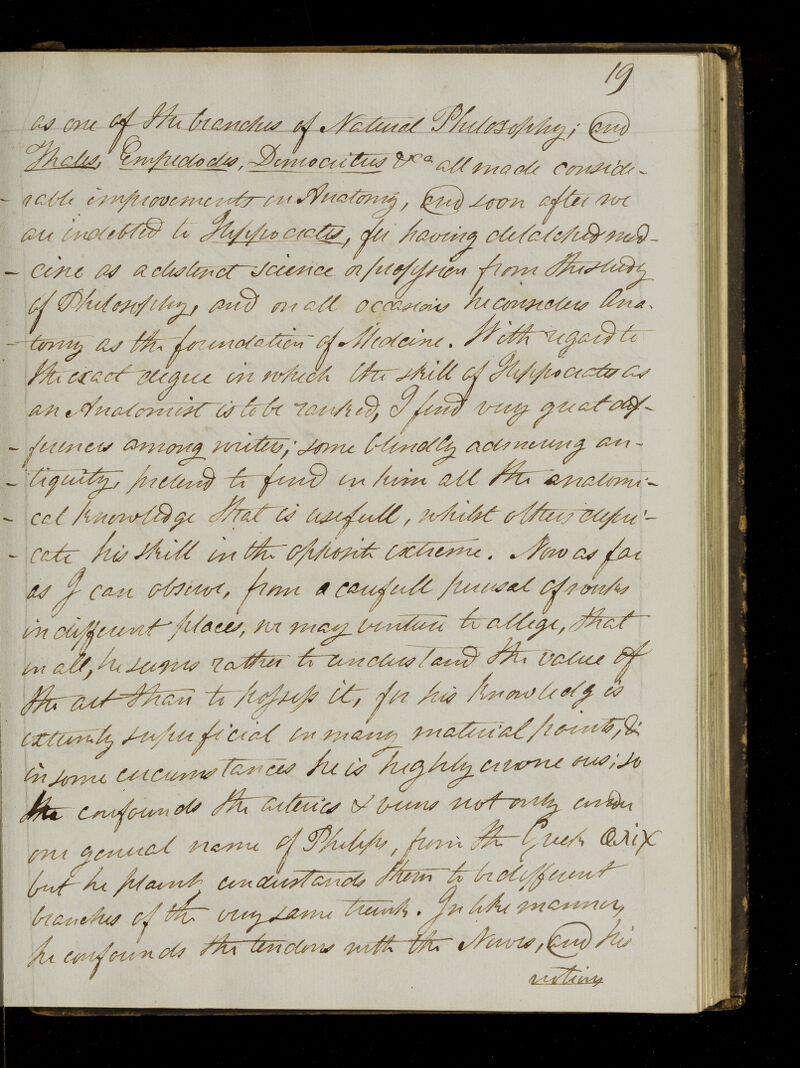 19
as one of the branches of Natural Philosophy; and
Thales, Empedodes, Democritus &ca all made conside-
rable improvements in Anatomy, and soon after we
are indebted to Hippocrates, for having detatched med-
cine as a distinct science or profession from the study
of Philosophy, and on all occasions he considers Ana-
tomy as the foundation of Medcine. With regard to
the exact degree in which the skill of Hippocrates as
an Anatomist is to be ranked, I find very great dif-
ferences among writers; some blindly admireing an-
tiquity, pretend to find in him all the anatomi-
cal knowledge that is usefull, whilst others depri-
cate his skill in the opposite extreme. Now as far
as I can observe, from a carefull perusal of
in different places, we may venture to allege, that
in all, he seems rather to understand the value of
the art than to possess it, for his knowledg is
extremly superficial in many material points, &
in some circumstances he is highly erroneous; so
he confounds the arteries & veins not only under
one general name of Phleps, from the Greek
but he plainly understands them to be different
branches of the very same trunk. In like manner,
he confounds the tendons with the Nerves, and his
notions